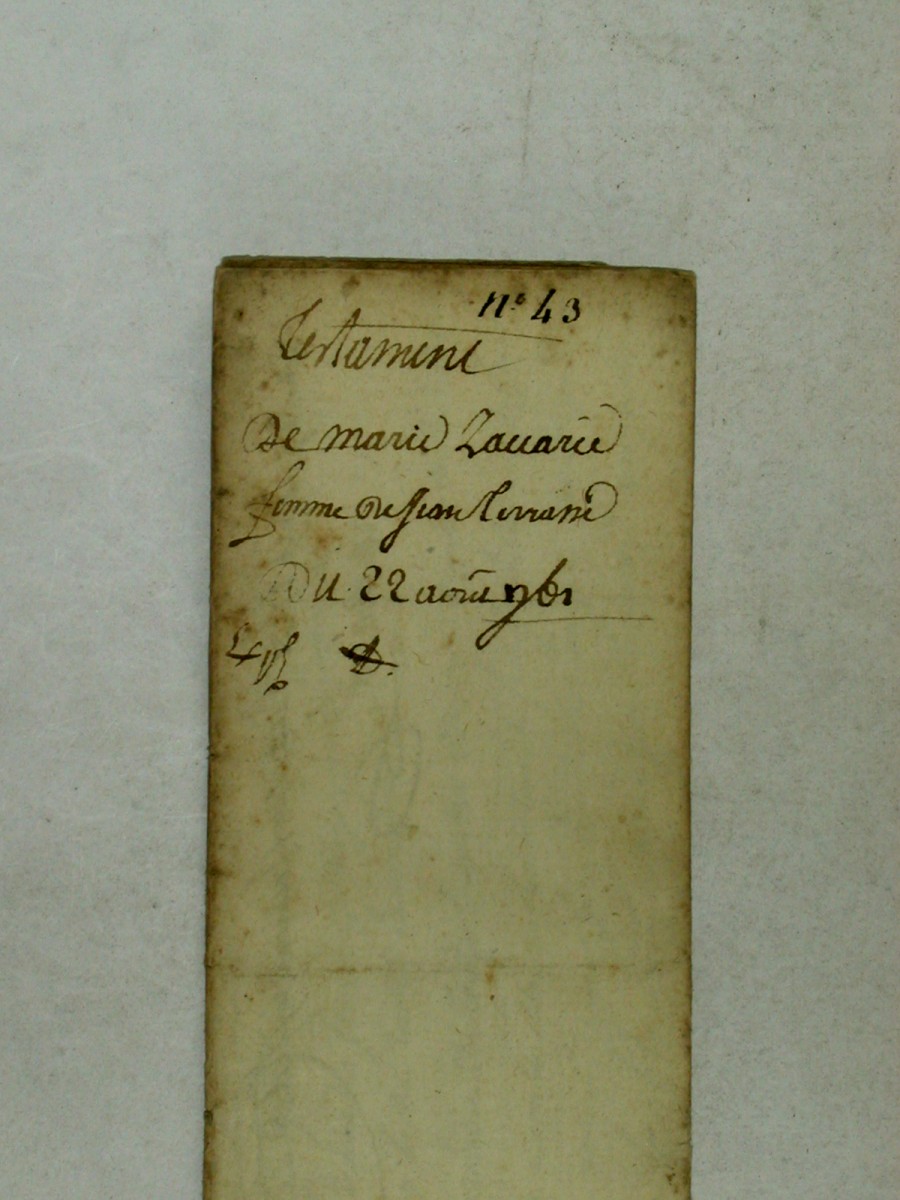 n° 43
Testament
De marie Zacarie
femme de Jean Terrasse
Du 22 août 1761